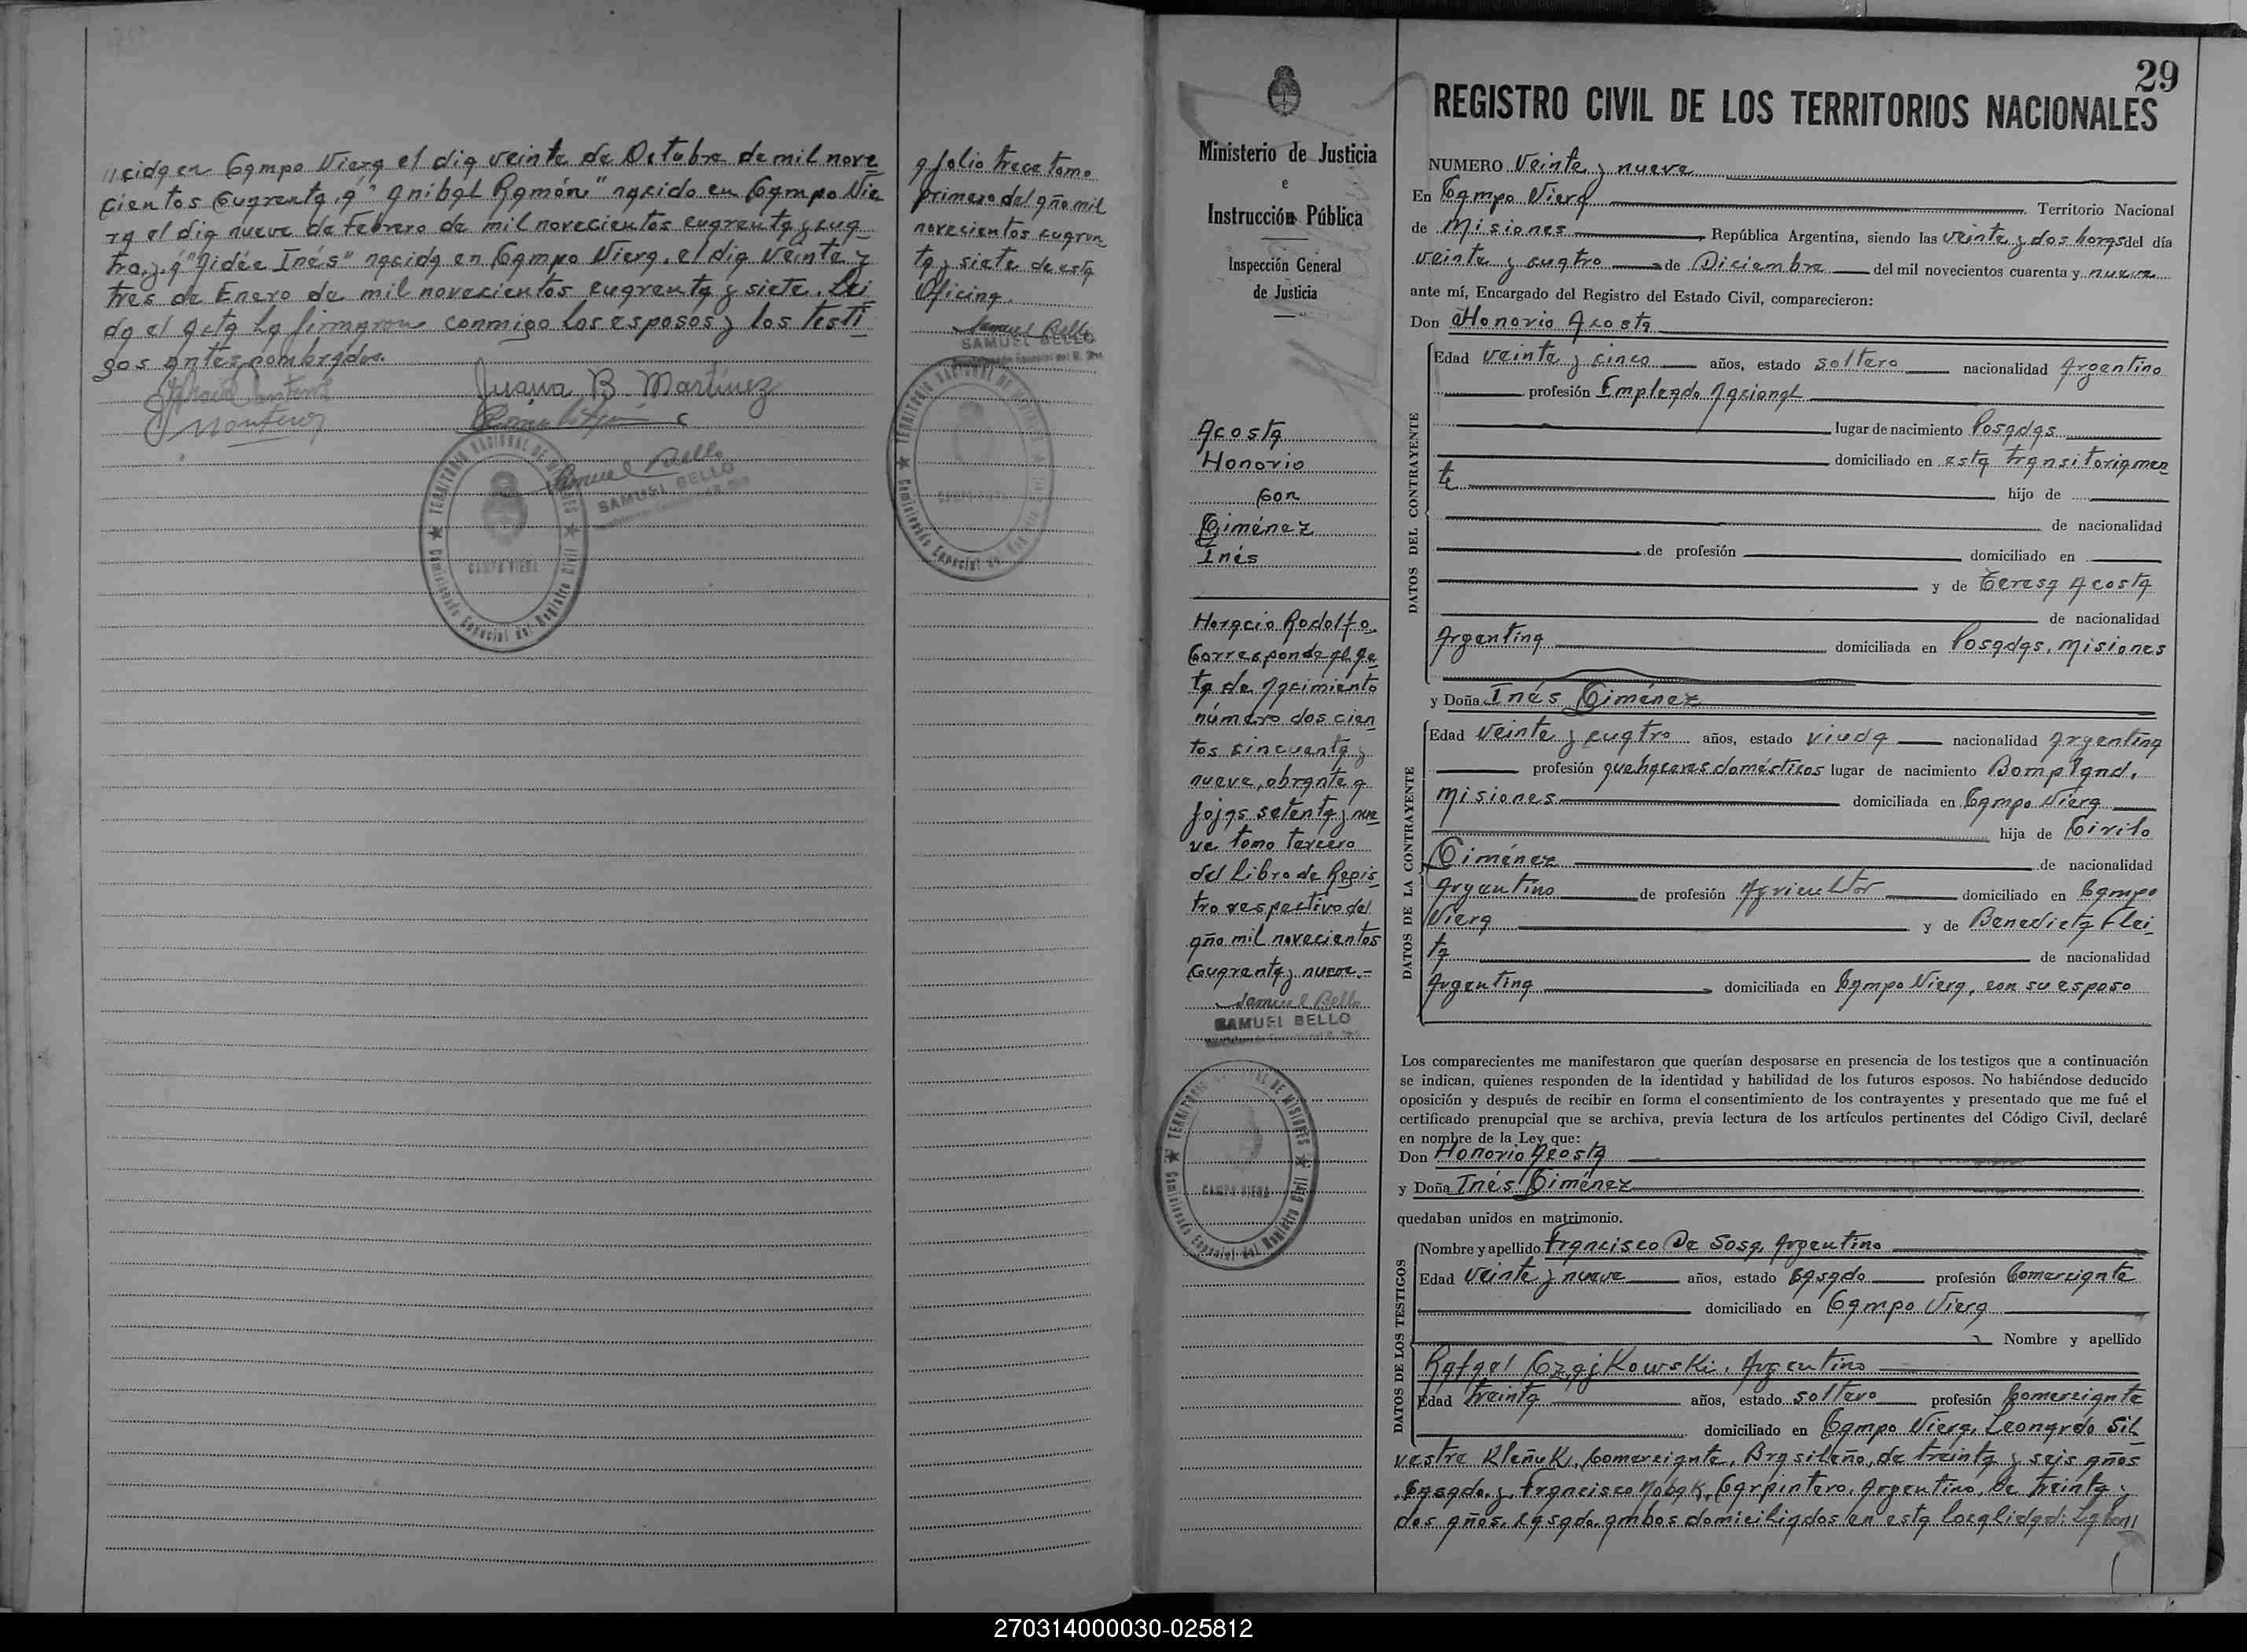 //cida en Campo Viera el dia veinte de Octubre de mil nove
cientos Cuarenta, a "Anibal Ramón" nacido en Campo Vie
ra el dia nueve de Febrero de mil novecientos cuarenta y cua
tro, y, a "Aidée Inés" nacida en Campo Viera, el dia Veinte y
tres de Enero de mil novecientos cuarenta y siete. Lei
da el acta La firmaron conmigo Los esposos y los testi
gos antes nombrados.
Juana B. Martínez
Samuel Bello
SAMUEL BELLO
TERRITORIO NACIONAL DE MISIONES
CAMPO VIERA
Comisionado Especial del Registro Civil
a folio trece tomo
primero del año mil
novecientos cuaren
ta y siete de esta
Oficina.
Samuel Bello
SAMUEL BELLO
TERRITORIO NACIONAL DE
Comisionado Especial del
Ministerio de Justicia
e
Instrucción Pública
Inspección General
de Justicia
Acosta
Honorio
Con
Giménez
Inés
Horacio Rodolfo
Corresponde al Ac
ta de Nacimiento
número dos cien
tos cincuenta y
nueve, obrante a
fojas setenta y nue
ve tomo tercero
del libro de Regis
tro respectivo del
año mil novecientos
Cuarenta y nueve.-
Samuel Bello
SAMUEL BELLO
TERRITORIO NACIONAL DE MISIONES
CAMPO VIERA
Comisionado Especial del Registro Civil
29
REGISTRO CIVIL DE LOS TERRITORIOS NACIONALES
NUMERO Veinte y nueve
En Campo Viera Territorio Nacional
de Misiones República Argentina, siendo las Veinte y dos horas del día
veinte y cuatro de Diciembre del mil novecientos cuarenta y nueve
ante mí, Encargado del Registro del Estado Civil, comparecieron:
Don Honorio Acosta
DATOS DEL CONTRAYENTE
Edad Veinte y cinco años, estado soltero nacionalidad Argentino
profesión Empleado Nacional
lugar de nacimiento Posadas
domiciliado en esta transitoriamen
te hijo de
de nacionalidad
de profesión domiciliado en
y de Teresa Acosta
de nacionalidad
Argentina domiciliada en Posadas, Misiones
y Doña Inés Giménez
DATOS DE LA CONTRAYENTE
Edad Veinte y cuatro años, estado viuda nacionalidad Argentina
profesión quehaceres domésticos lugar de nacimiento Bompland,
Misiones domiciliada en Campo Viera
hija de Cirilo
Giménez de nacionalidad
Argentino de profesión Agricultor domiciliado en Campo
Viera y de Benedicta Flei
ta de nacionalidad
Argentina domiciliada en Campo Viera, con su esposo
Los comparecientes me manifestaron que querían desposarse en presencia de los testigos que a continuación
se indican, quienes responden de la identidad y habilidad de los futuros esposos. No habiéndose deducido
oposición y después de recibir en forma el consentimiento de los contrayentes y presentado que me fué el
certificado prenupcial que se archiva, previa lectura de los artículos pertinentes del Código Civil, declaré
en nombre de la Ley que:
Don Honorio Acosta
y Doña Inés Giménez
quedaban unidos en matrimonio.
DATOS DE LOS TESTIGOS
Nombre y apellido Francisco De Sosa, Argentino
Edad Veinte y nueve años, estado Casado profesión Comerciante
domiciliado en Campo Viera
Nombre y apellido
Rafael Czajkowski, Argentino
Edad treinta años, estado soltero profesión Comerciante
domiciliado en Campo Viera, Leonardo Sil
vestre Kleñuk, Comerciante, Brasileño, de treinta y seis años
Casado, y, Francisco Nobak, Carpintero, Argentino, de treinta y
dos años, casado, ambos domiciliados en esta localidad:
270314000030-025812